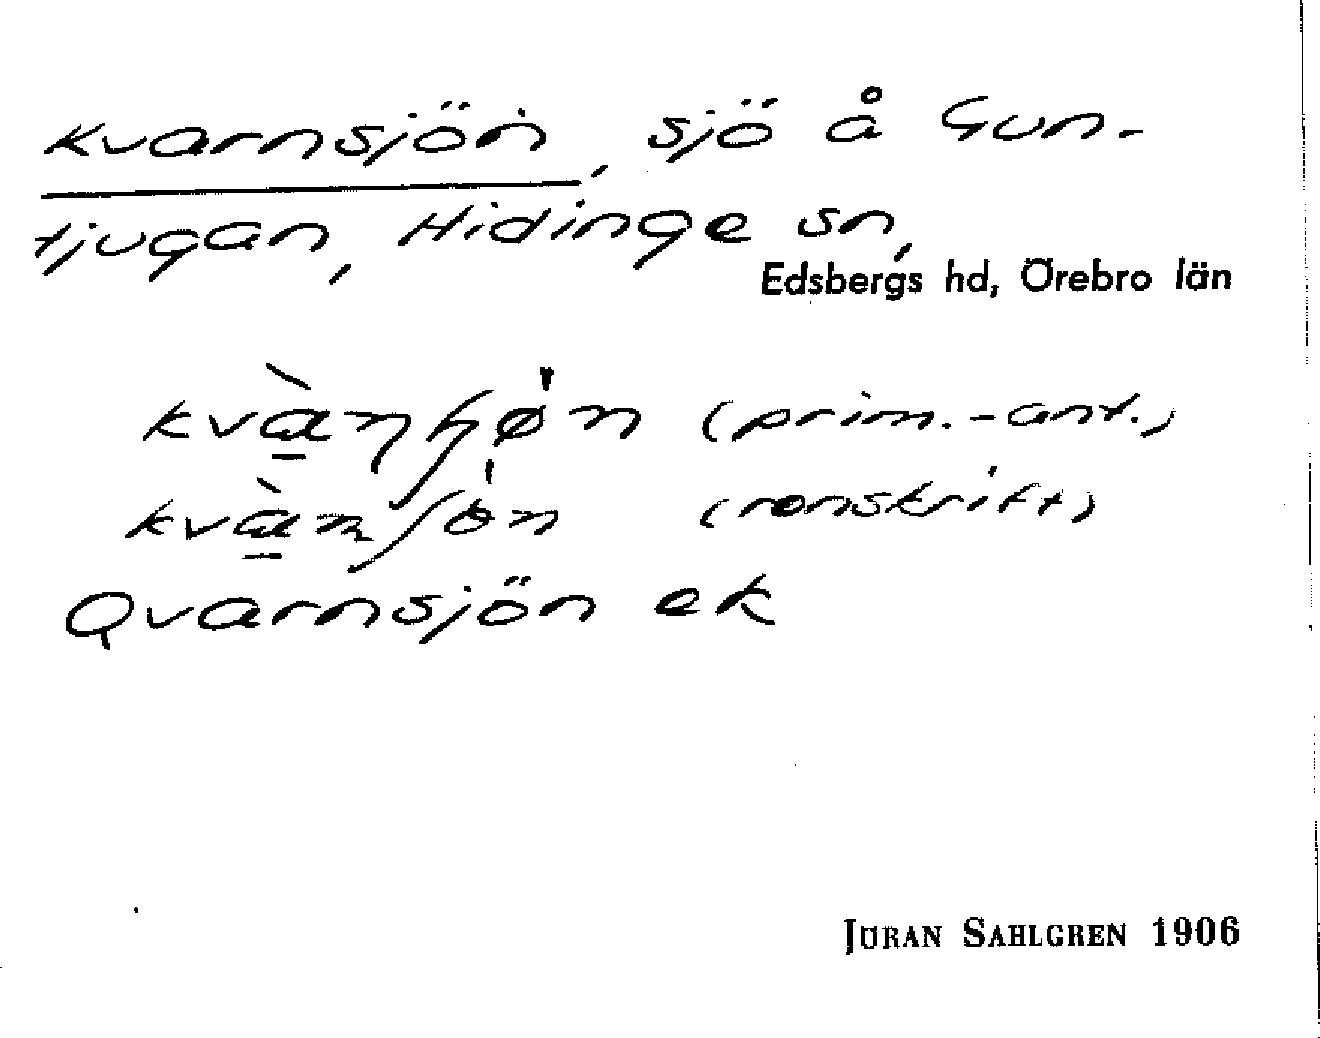 Kvarnsjön, sjö å Gun-
tjugan, Hidinge sn,
Edsbergs hd, Örebro län
(prim.-ant.)
(renskrift)
Qvarnsjön ek
JÖRAN SAHLGREN 1906